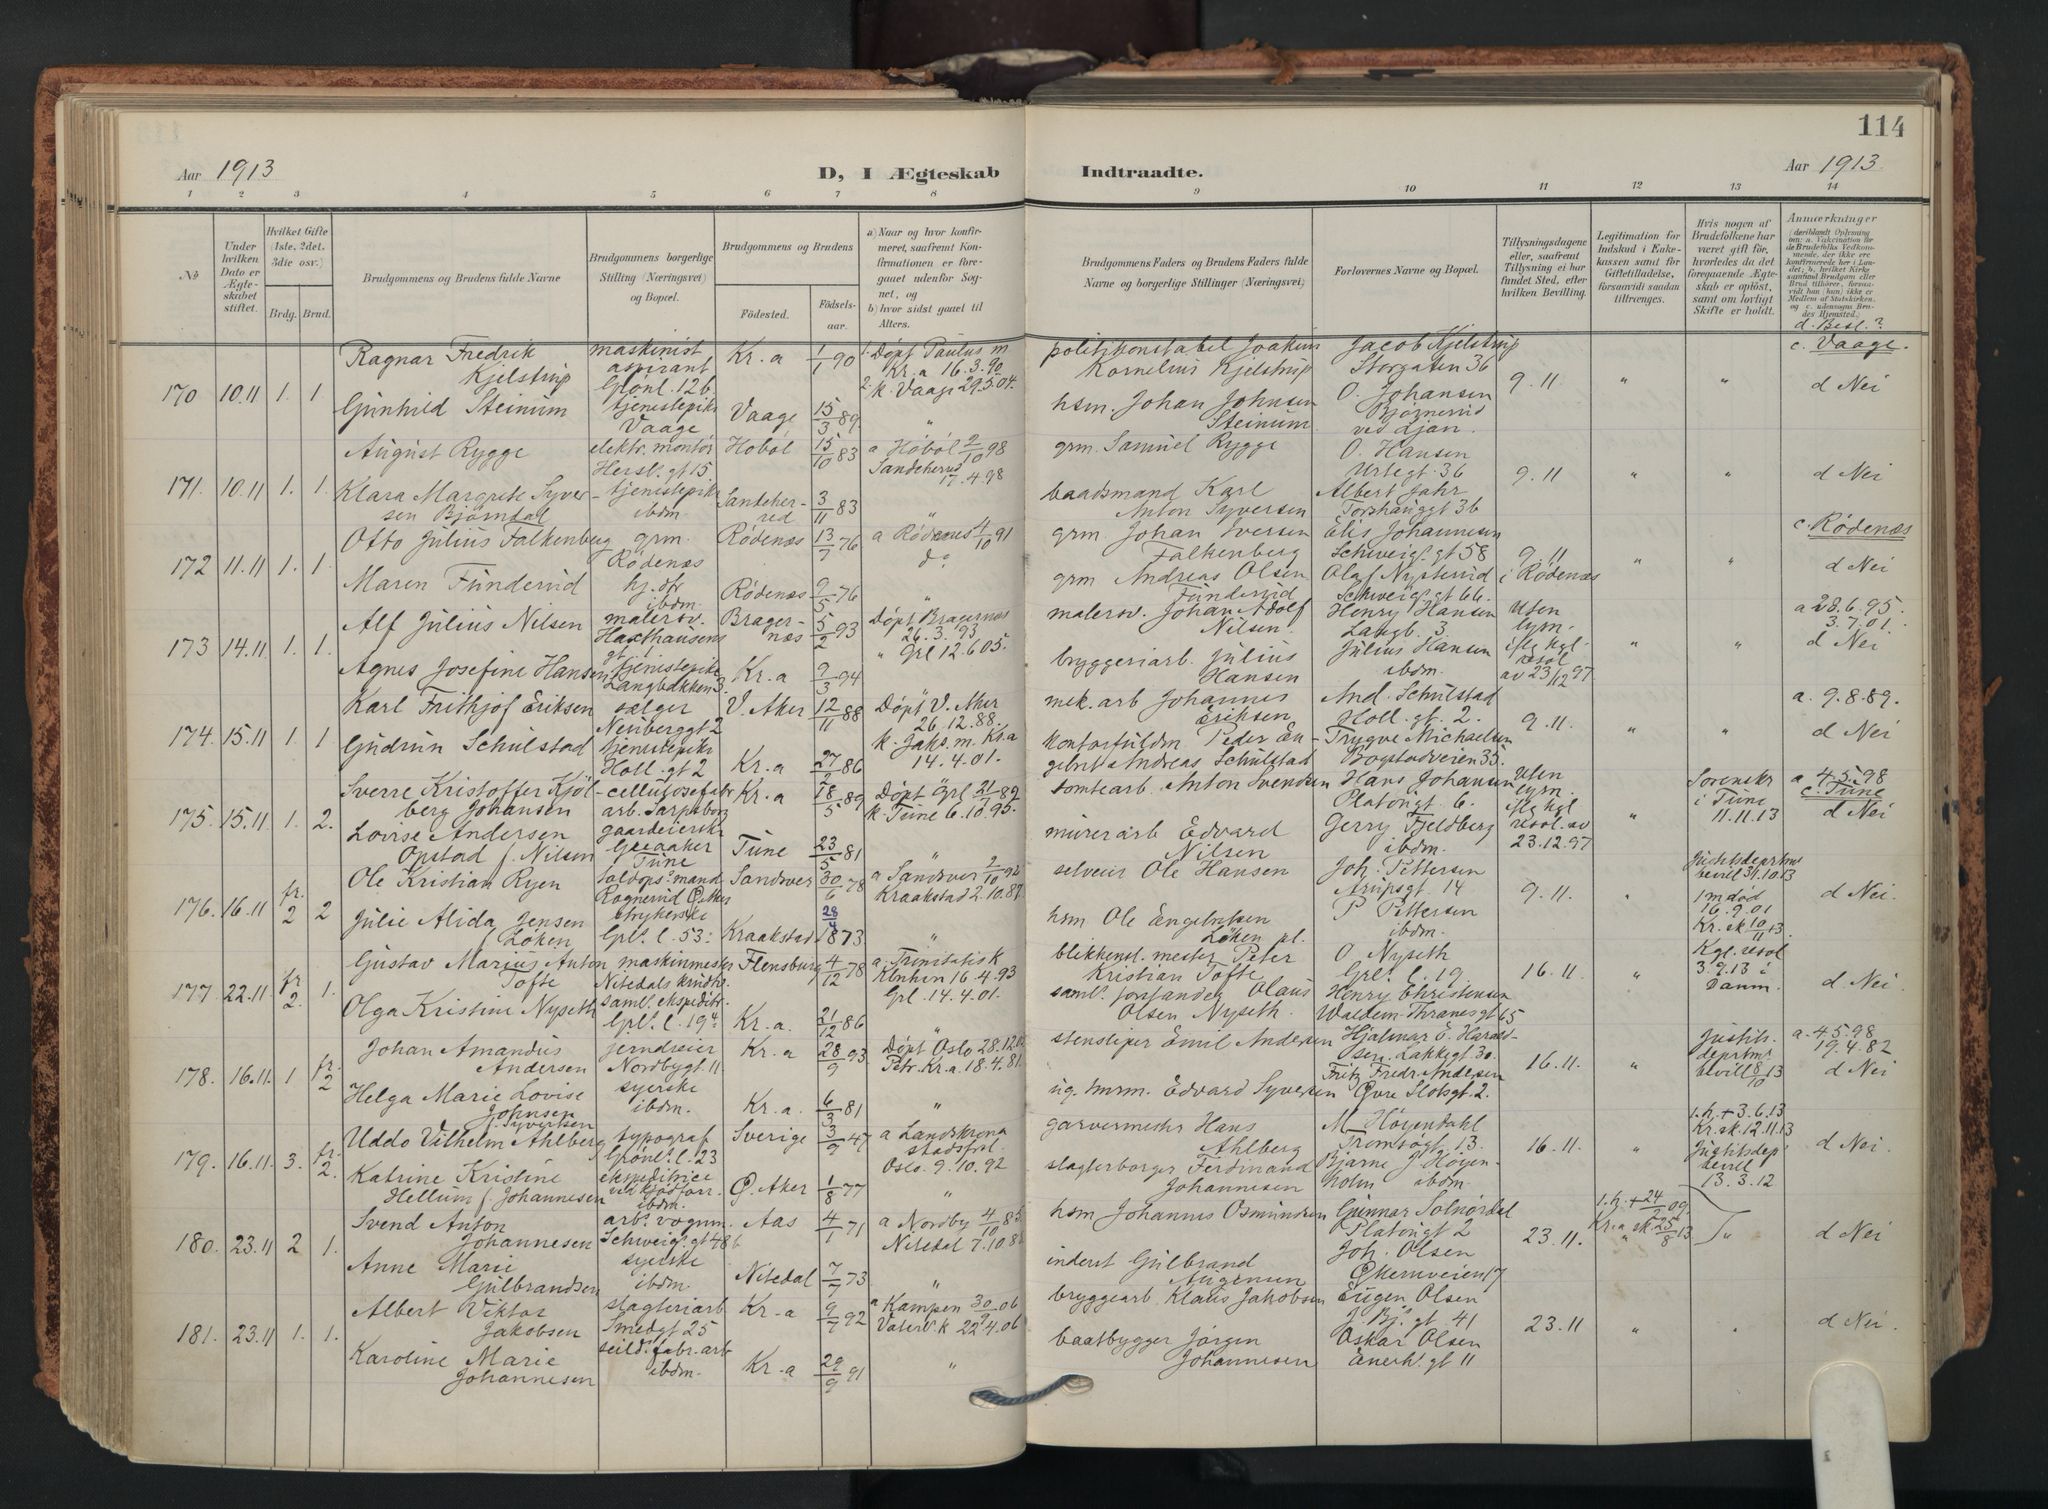 114
Aar 1913
D, I Ægteskab Indtraadte.
Aar 1913.
1 2 3 4 5 6 7 8 9 10 11 12 13 14
No
Under hvilken Dato er Ægteskabet stiftet.
Hvilket Gifte (1ste, 2det, 3die osv.)
Brdg. Brud.
Brudgommens og Brudens fulde Navne
Brudgommens borgerlige Stilling (Næringsvei) og Bopæl.
Brudgommens og Brudens
Födested. Födselsaar.
a) Naar og hvor konfirmeret, saafremt Konfirmationen er foregaaet udenfor Sognet, og
b) hvor sidst gaaet til Alters.
Brudgommens Faders og Brudens Faders fulde Navne og borgerlige Stillinger (Næringsvei)
Forlovernes Navne og Bopæl.
Tillysningsdagene eller, saafremt Tillysning ei har fundet Sted, efter hvilken Bevilling.
Legitimation for Indskud i Enkekassen samt for Giftetilladelse, forsaavidt saadan tiltrænges.
Hvis nogen af Brudefolkene har været gift før, hvorledes da det foregaaende Ægteskab er opløst, samt om lovligt Skifte er holdt.
Anmærkninger
d. Besl.?
170 10.11 1. 1
Ragnar Fredrik Kjelstrup
maskinist aspirant Grönl. 12b
Kr.a 1/1 90
1. Döpt Paulus m Kr.a 16.3.90
2. k. Vaage 29.5.04.
politikonstabel Joakim Kornelius Kjelstrup
Jacob Kjelstrup Storgaten 36
9.11 " "
c. Vaage.
d Nei
Gunhild Steinum
tjenestepike Vaage
Vaage 15/3 89. "
hsm. Johan Johnsen Steinum
O. Johansen Bjørnerud ved Ljan.
171. 10.11 1. 1.
August Rygge
elektr. montør Hersl. gt 15.
Hobøl 15/10 83
a Hobøl 2/10 98
Sandeherred 17.4.98
grm. Samuel Rygge
O. Hansen Urtegt. 36
9.11 " "
d Nei
Klara Margrete Syversen Bjørndal
tjenestepike ibdm.
Sandeherred 3/11 83 "
baadsmand Karl Anton Syversen
Albert Jahr Torshauggt 36
172 11.11 1. 1.
Otto Julius Falkenberg
grm. Rödenæs
Rödenæs 13/7 76
a Rödenes 4/10 91
do
grm. Johan Iversen Falkenberg
Elis Johannesen Schweigl. gt 58
9.11 i Rödenæs " "
c. Rödenæs
d Nei
Maren Funderud
hj. dtr ibdm.
Rödenæs 9/5 76 "
grm Andreas Olsen Funderud
Olaf Nysterud Schweigl. gt 66.
173 14.11 1. 1.
Alf Julius Nilsen
malersv. Haxthausens gt 1
Bragernæs 5/2 93
Döpt Bragernæs 26.3.93
" Grl 12.6 05.
malersv. Johan Adolf Nilsen.
Henry Hansen Langb. 3
Uten lysn. iflg kgl. resol av 23/12 97 " "
a 28.6.95. 3.7.01.
d Nei
Agnes Josefine Hansen
tjenestepike Langbakken 3.
Kr.a 9/3 94
bryggeriarb. Julius Hansen
Julius Hansen ibdm.
174. 15.11 1. 1
Karl Frithjof Eriksen
sælger Neuberggt 2
V. Aker 12/11 88
Döpt V. Aker 26.12.88.
k. Jaks. m. Kr.a 14.4.01.
mek. arb Johannes Eriksen
And. Schulstad Holl. gt. 2.
9.11. " "
a. 9.8.89.
d Nei
Gudrun Schulstad
tjenestepike Holl. gt 2
Kr.a 27/2 86
kontorfuldm Peder Engebret Andreas Schulstad
Trygve Michaelsen Bogstadveien 35.
175. 15.11 1. 2.
Sverre Kristoffer Kjölberg Johansen
cellulosefabr arb. Sarpsborg
Kr.a 18/5 89
Döpt Grl 21/7 89
k. Tune 6.10.95.
tomtearb. Anton Svendsen
Hans Johansen Platousgt 6.
Uten lysn. iflg kgl resol. av 23.12.97 "
Sorenskr i Tune 11.11.13
a 4.5.98
c. Tune
d Nei
Lovise Andersen Opstad f. Nilsen
gaardeierske Greaaker Tune
Tune 23/5 81 "
murerarb Edvard Nilsen
Gerry Fjeldberg ibdm.
176. 16.11 fr. 2 2
Ole Kristian Ryen
Rognerud Ø. Aker
Sandsver 30/6 78
a Sandsver 2/10 92
Kraakstad 2.10.87.
selveier Ole Hansen
Joh. Pettersen Arupsgt. 14
9.11. "
Justitsdeprtms bevil 31.10 13
1 m död 16.9.01 Kr. sk 10/11 13.
d Nei.
Julie Alida Jensen f. Løken
strykerske Grl. l. 53:
Kraakstad 28/4 1873 "
hsm Ole Engebretsen Løken pl.
P Pettersen ibdm.
177. 22.11 fr 2. 1.
Gustav Marius Anton Tofte
maskinmester Nitedals krudtv.
Flensburg 4/12 78
a. Trinitatis k Kbnhvn 16.4.93
Grl. 14.4.01.
blikkensl. mester Peter Kristian Tofte
O Nyseth Grl. l. 19.
16.11. "
Kgl. resol 3.9.13 i Danm.
d. Nei.
Olga Kristine Nyseth
saml. ekspeditr. Grl. l. 19a
Kr.a. 21/12 86 "
saml. forstander Olaus Olsen Nyseth.
Henry Christensen Waldem. Thranes gt 65
178. 16.11. 1 fr. 2
Johan Amandus Andersen
jerndreier Nordbygt. 11.
Kr.a 28/9 93
Döpt Oslo 28.12.0
Petr. Kr.a. 18.4.81.
stensliper Emil Andersen
Hjalmar E. Haraldsen. Lakkegt. 30.
16.11. "
Justits. deprtms bevill 8/10 13
a. 4.5.98 19.4.82
d Nei
Helga Marie Lovise Johnsen f. Syvertsen
syerske ibdm.
Kr.a. 6/3 81 "
ug. mrm. Edvard Syversen
Fritz Fredr. Andersen Øvre Slotsgt. 2.
179. 16.11. 3. fr. 2.
Uddo Vilhelm Ahlberg
typograf Grönl. l. 23
Sverige 3/9 47
a Landskrona stadsfrsl.
Oslo. 9.10.92
garvermestr Hans Ahlberg
M Höyendahl Tromsögt. 13.
16.11. "
1. h. + 3.6.13 Kr. sk. 12.11.13 Justitsdep bevill 13.3.12
d Nei.
Katrine Kristine Hellum f. Johannesen
ekspeditrice ved kjödforr. ibdm.
Ø. Aker 1/8 77 "
slagterborger Ferdinand Johannesen
Bjarne J. Höyenholm ibdm.
180. 23.11 2 1.
Svend Anton Johannesen
arb. vognm. Schweigl. gt 48b
Aas 4/1 71
a Nordby 4/10 85.
Nitedal 7.10.8
hsm Johannes Osmundsen
Gunnar Solnørdal Platougt 2
23.11.
1. h. + 24/2 09 Kr.a sk 25/8 13
"
d Nei
Anne Marie Gulbrandsen
syerske ibdm.
Nitedal 7/7 73 "
inderst Gulbrand Augensen
Joh. Olsen Økernveien 17
181. 23.11 1. 1.
Albert Viktor Jakobsen
slagteriarb Smedgt 25
Kr.a 9/7 92
a Kampen 30/9 06
Vaterl. k 22.4.06
bryggearb. Klaus Jakobsen
Eugen Olsen J. Bj. gt 41
23.11 " "
d Nei
Karoline Marie Johannesen
seild. fabr. arb ibdm.
Kr.a 29/9 91 "
baatbygger Jörgen Johannesen
Oskar Olsen Enerh. gt 11